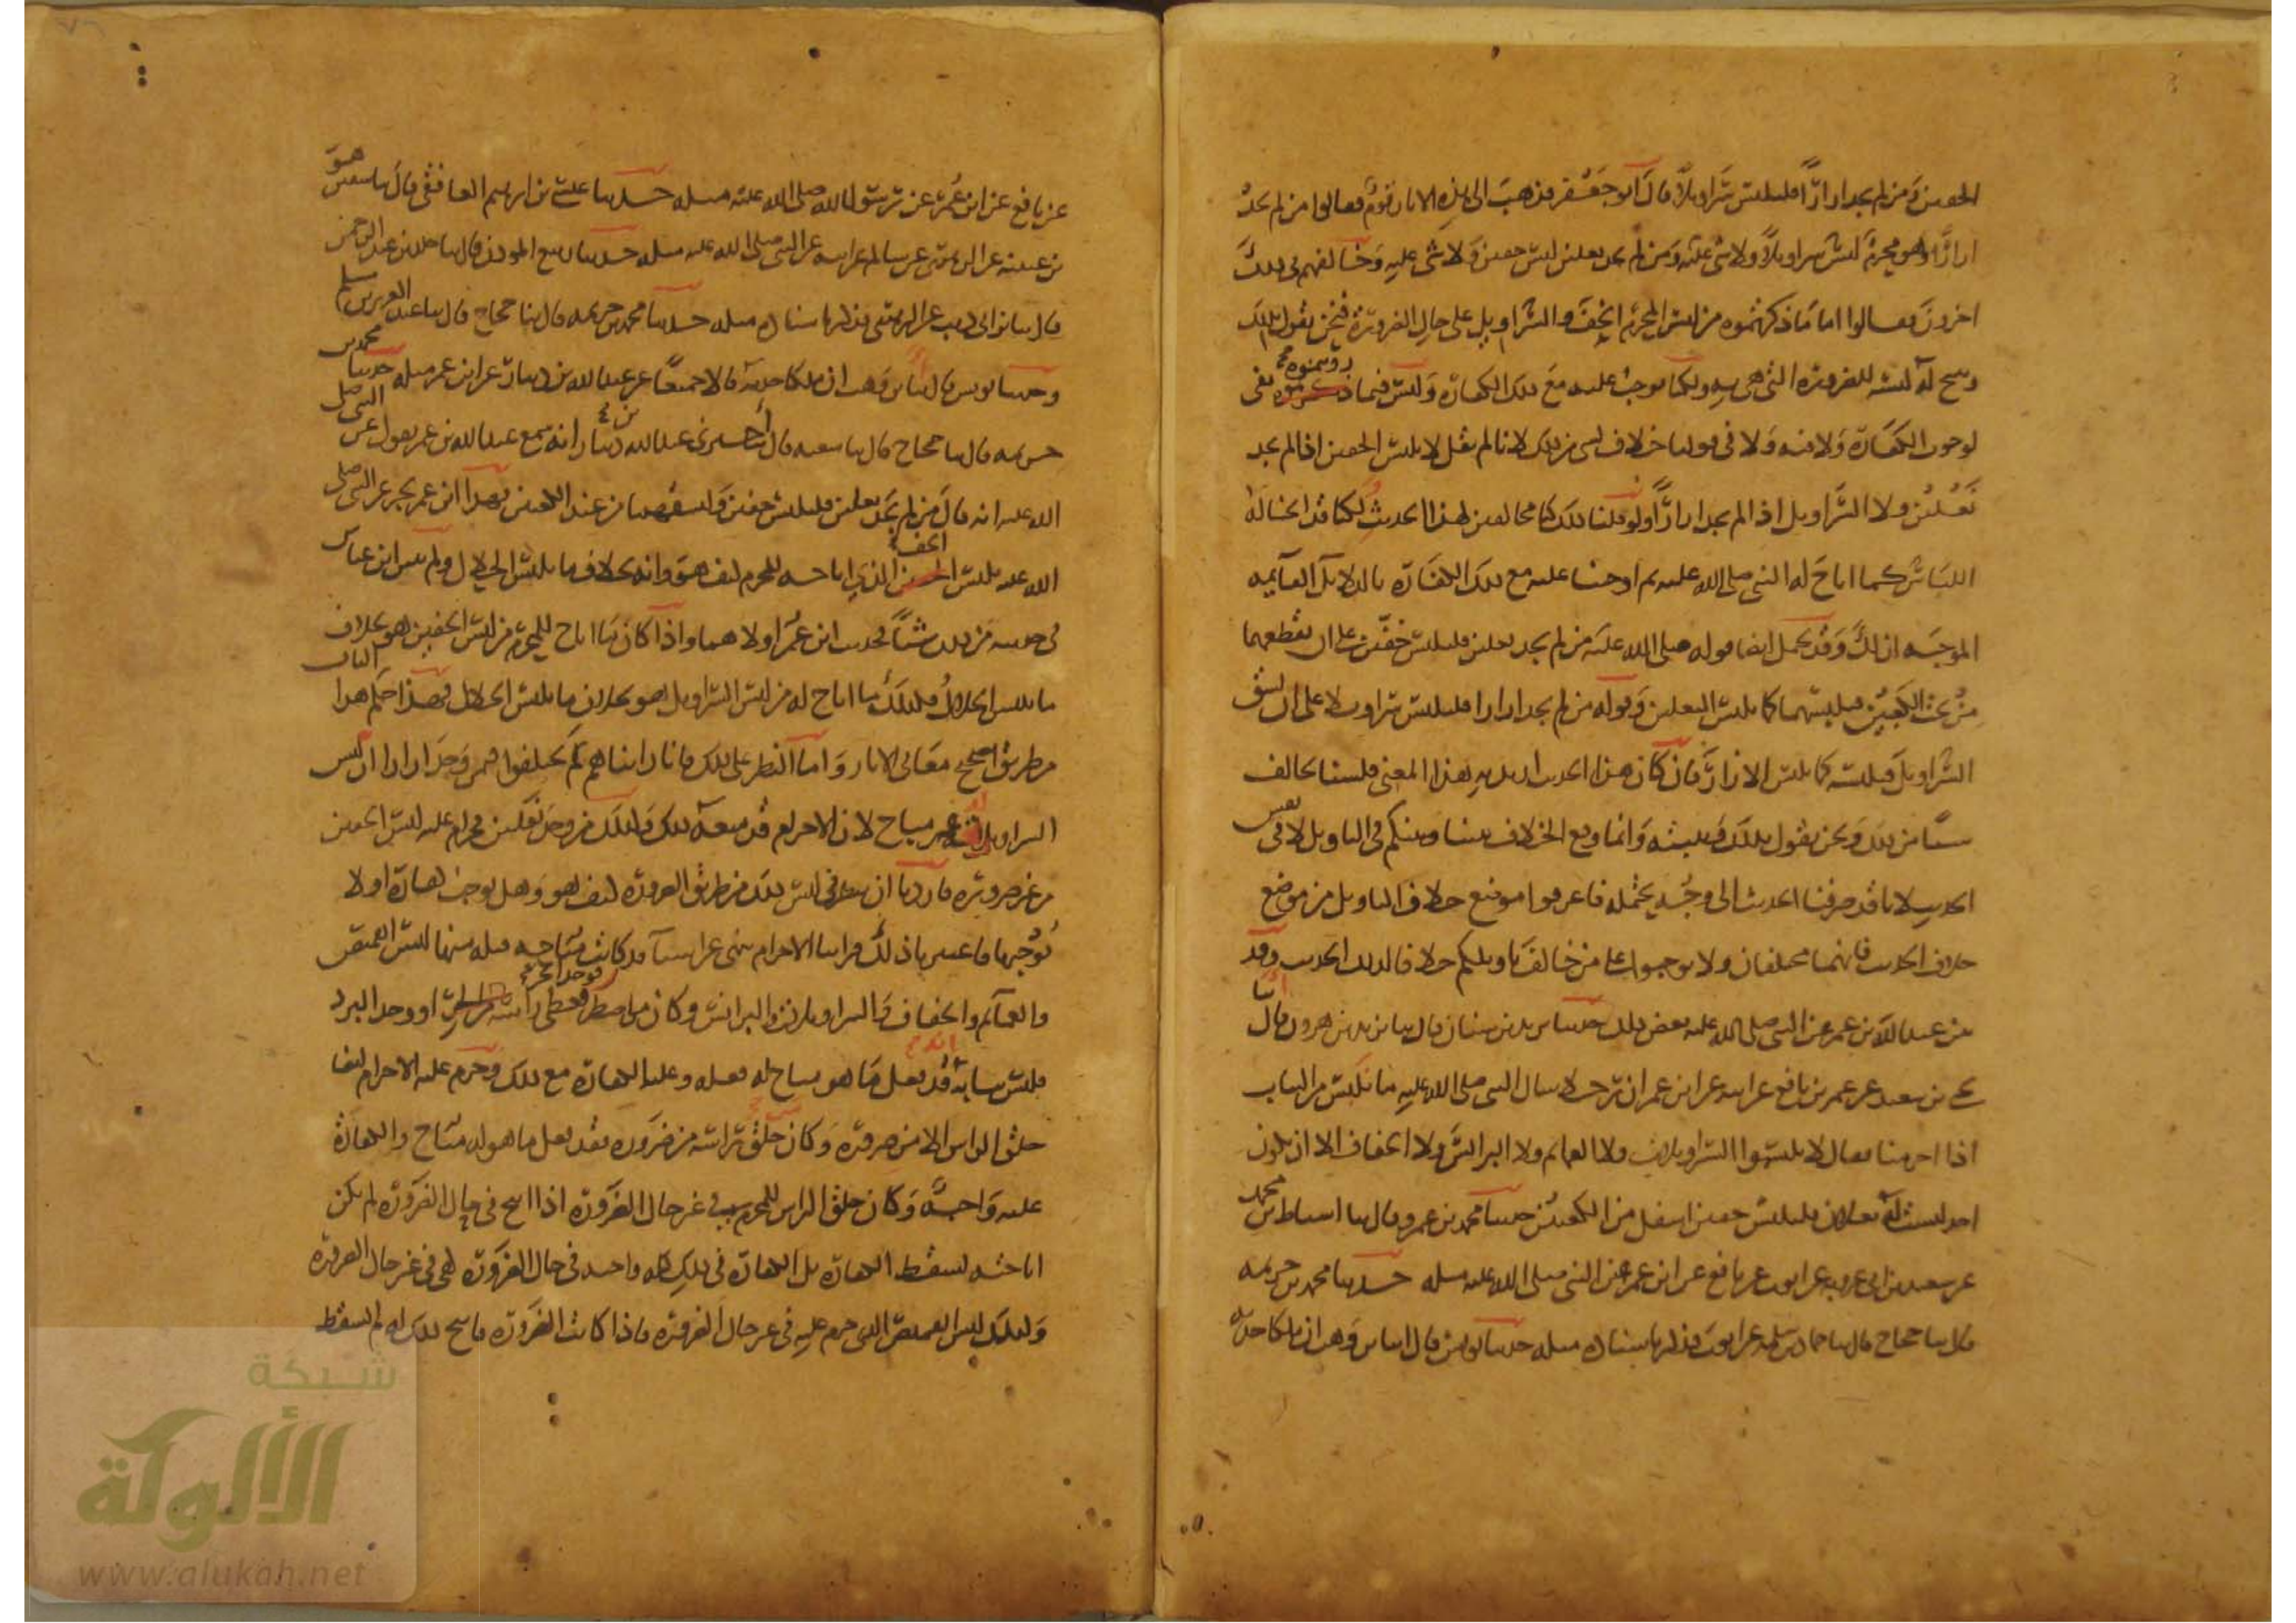 الخفين ومن لم يجد ازارا فليلبس سراويلا قال ابو جعفر فذهب الى هذه الاثار قوم فقالوا من لم يجد
ازارا وهو محرم لبس سراويلا ولا شي عليه ومن لم يجد نعلين لبس خفين ولا شي عليه وخالفهم في ذلك
اخرون فقالوا اما ما ذكرتموه من لبس المحرم الخف والسراويل على حال الضرورة فنحن نقول بذلك
ونبيح له لبسه للضرورة التي هي به ولكنا نوجب عليه مع ذلك الكفارة وليس فيما رويتموه نفي
لوجوب الكفارة ولا فيه ولا في قولنا خلاف لشي من ذلك لانا لم نقل لا يلبس الخفين اذا لم يجد
نعلين ولا السراويل اذا لم يجد ازارا ولو قلنا ذلك كنا مخالفين لهذا الحديث ولكنا قد ابحنا له
اللباس كما اباح له النبي صلى الله عليه ثم اوجبنا عليه مع ذلك الكفارة بالدلايل القايمة
الموجبة لذلك وقد يحتمل ايضا قوله صلى الله عليه من لم يجد نعلين فليلبس خفين على ان يقطعهما
من تحت الكعبين فيلبسهما كما يلبس النعلين وقوله من لم يجد ازارا فليلبس سراويلا على ان يشق
السراويل فيلبسه كما يلبس الازار فان كان هذا الحديث اريد به هذا المعنى فلسنا نخالف
شيا من ذلك ونحن نقول بذلك ونثبته وانما وقع الخلاف بيننا وبينكم في التاويل لا في نفس
الحديث لانا قد صرفنا الحديث الى وجه يحتمله فاعرفوا موضع خلاف التاويل من موضع
خلاف الحديث فانهما مختلفان ولا توجبوا على من خالف تاويلكم خلافا لذلك الحديث وقد
بين عبد الله بن عمر عن النبي صلى الله عليه بعض ذلك حدثنا يزيد بن سنان قال ثنا يزيد بن هرون قال انا
يحيى بن سعيد عن عمر بن نافع عن ابيه عن ابن عمر ان رجلا سال النبي صلى الله عليه ما نلبس من الثياب
اذا احرمنا فقال لا تلبسوا السراويلات ولا العمايم ولا البرانس ولا الخفاف الا ان يكون
احد ليست له نعلان فليلبس خفين اسفل من الكعبين حدثنا محمد بن عمرو قال ثنا اسباط بن محمد
عن سعيد بن ابي عروبة عن ايوب عن نافع عن ابن عمر عن النبي صلى الله عليه مثله حدثنا محمد بن خزيمة
قال ثنا حجاج قال ثنا حماد بن سلمة عن ايوب فذكر باسناده مثله حدثنا يونس قال انا ابن وهب ان مالكا حدثه
عن نافع عن ابن عمر عن رسول الله صلى الله عليه مثله حدثنا عيسى بن ابرهيم الغافقي قال ثنا سفين هو
بن عيينة عن الزهري عن سالم عن ابيه عن النبي صلى الله عليه مثله حدثنا ربيع المؤذن قال ثنا خالد بن عبد الرحمن
قال ثنا ابن ابي ذيب عن الزهري فذكر باسناده مثله حدثنا محمد بن خزيمة قال ثنا حجاج قال ثنا عبد العزيز بن مسلم
وحدثنا يونس قال انا ابن وهب ان مالكا حدثه قالا جميعا عن عبد الله بن دينار عن ابن عمر مثله حدثنا محمد بن
خزيمة قال ثنا حجاج قال ثنا شعبة قال اخبرني عبد الله بن دينار انه سمع عبد الله بن عمر يقول عن النبي صلى
الله عليه انه قال من لم يجد نعلين فليلبس خفين وليشقهما من عند الكعبين فهذا ابن عمر يخبر عن النبي صلى
الله عليه بلبس الخف الذي اباحه للمحرم كيف هو وانه بخلاف ما يلبس الحلال ولم يبين ابن عباس
في حديثه من ذلك شيا فحديث ابن عمر اولاهما واذا كان ما اباح للمحرم من لبس الخفين هو بخلاف
ما يلبس الحلال فكذلك ما اباح له من لبس السراويل هو بخلاف ما يلبس الحلال فهذا حكم هذا الباب
من طريق تصحيح معاني الاثار واما النظر على ذلك فانا راينا هم لم يختلفوا فيمن وجد ازارا ان لبس
السراويل له غير مباح لان الاحرام قد منعه ذلك وكذلك من وجد نعلين فحرام عليه لبس الخفين
من غير ضرورة فاردنا ان ننظر في لبس ذلك من طريق الضرورة كيف هو وهل يوجب كفارة او لا
يوجبها فاعتبرنا ذلك فراينا الاحرام ينهى عن اشيا قد كانت مباحة قبله منها لبس القميص
والعمايم والخفاف والسراويلات والبرانس وكان من اضطر فوجد الحر فغطى راسه او وجد البرد
فلبس ثيابه انه قد فعل ما هو مباح له فعله وعليه الكفارة مع ذلك وحرم عليه الاحرام ايضا
حلق الراس الا من ضرورة وكان من حلق راسه من ضرورة فقد فعل ما هو له مباح والكفارة
عليه واجبة وكان حلق الراس للمحرم في غير حال الضرورة اذا ابيح في حال الضرورة لم يكن
اباحته تسقط الكفارة بل الكفارة في ذلك كله واجبة في حال الضرورة كهي في غير حال الضرورة
وكذلك لبس القميص الذي حرم عليه في غير حال الضرورة فاذا كانت الضرورة فابيح ذلك له لم يسقط
شبكة
الألوكة
www.alukah.net